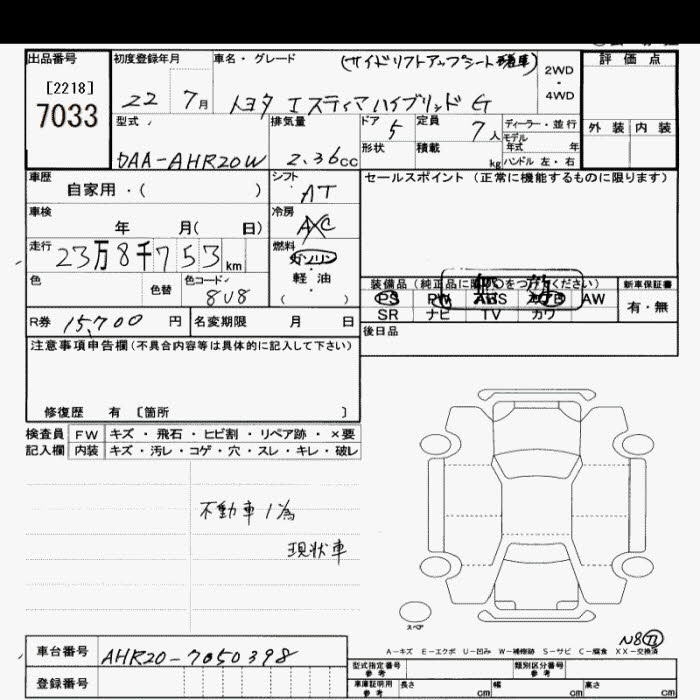 出品番号 初度登録年月 車名・グレード (サイドリフトアップシート装着車) 2WD・4WD 評価点
[2218]
7033
22 7月 トヨタ エスティマハイブリッド G
型式 排気量 ドア 定員 ディーラー・並行 外装 内装
DAA-AHR20W 2.36cc 5 7人 モデル年式 年
形状 積載 kg ハンドル 左・右
車歴 シフト セールスポイント (正常に機能するものに限ります)
自家用・( ) AT
車検 冷房
年 月( 日) A/C
走行 燃料
23万8千753km ガソリン・軽油
色 色替 色コード ( )
8U8
装備品 (純正品に限り○をつけてください) 新車保証書
PS PW ABS AW 有・無
SR ナビ TV カワ
R券 15,700円 名変期限 月 日
後日品
注意事項申告欄(不具合内容等は具体的に記入して下さい)
修復歴 有 〔箇所 〕
検査員 FW キズ・飛石・ヒビ割・リペア跡・×要
記入欄 内装 キズ・汚レ・コゲ・穴・スレ・キレ・破レ
不動車ノ為
現状車
スペア
N8 77
A-キズ E-エクボ U-凹み W-補修跡 S-サビ C-腐食 XX-交換済
車台番号 AHR20-7050398
登録番号
型式指定番号 参考 類別区分番号 参考
車庫証明用 参考 長さ cm 幅 cm 高さ cm